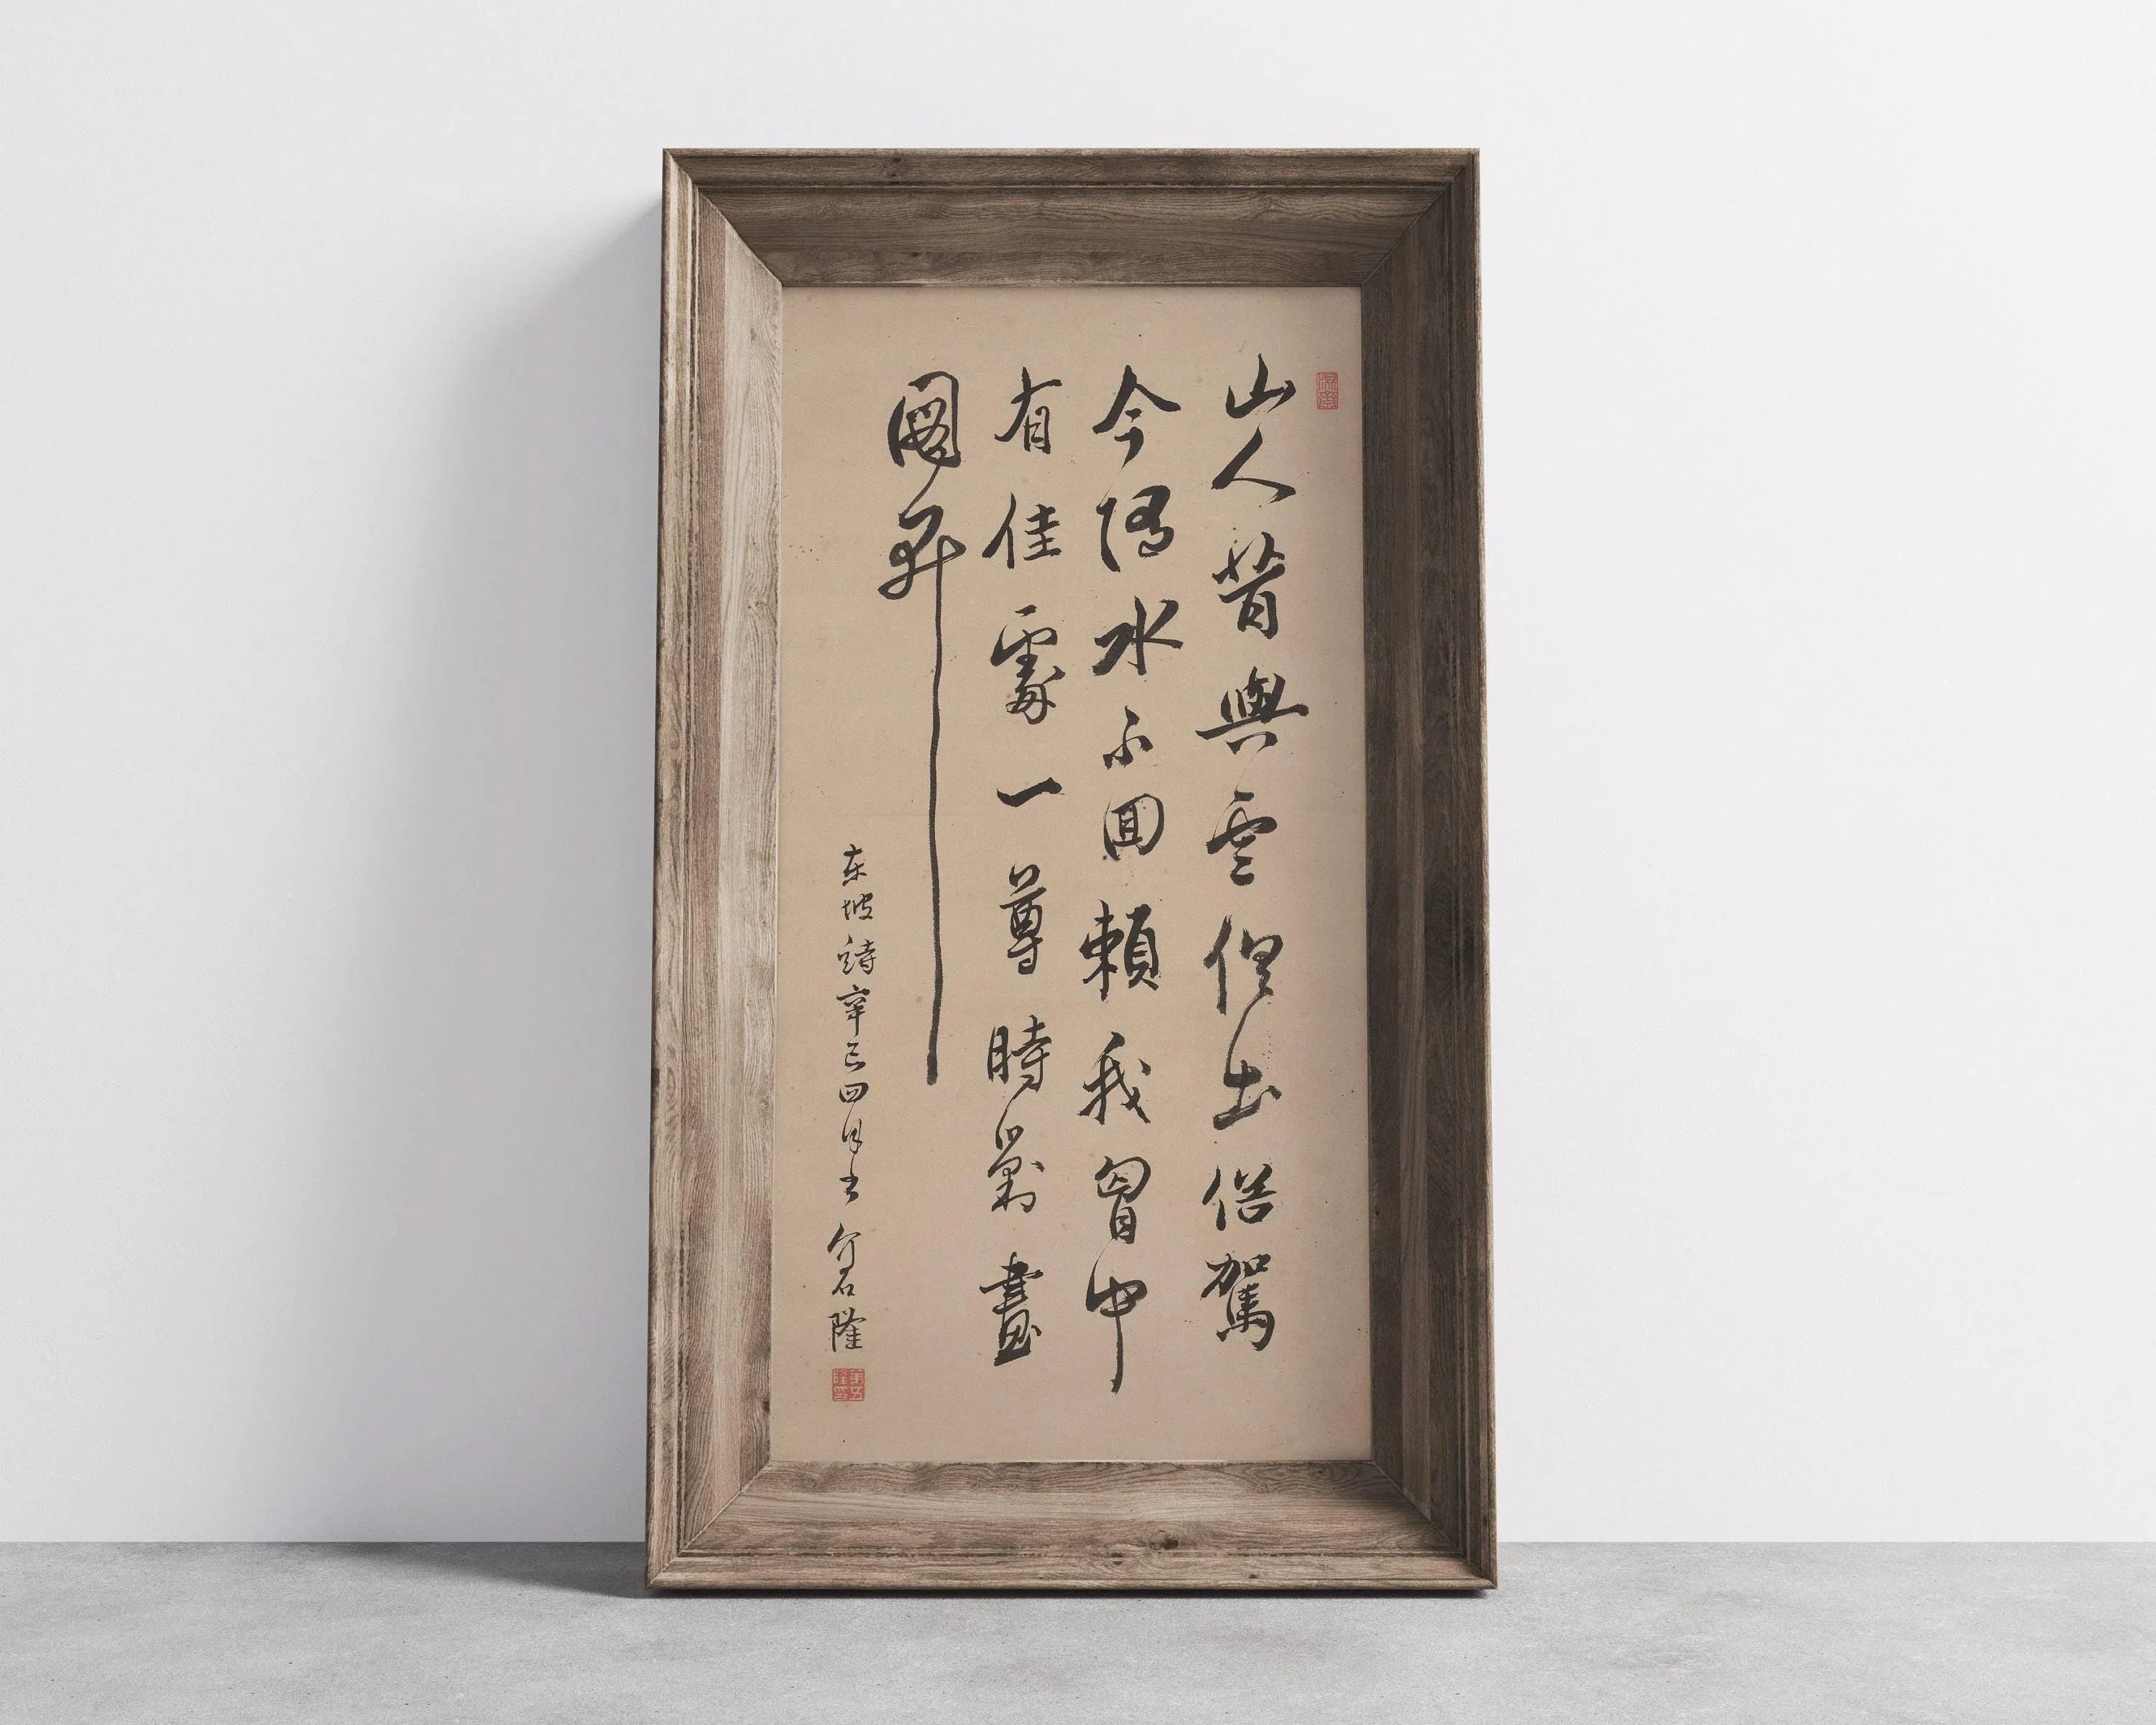 山人昔與雲俱出俗駕
今隨水不回賴我胷中
有佳處一尊時對畫
圖開
東坡詩辛巳四月書 介石隆